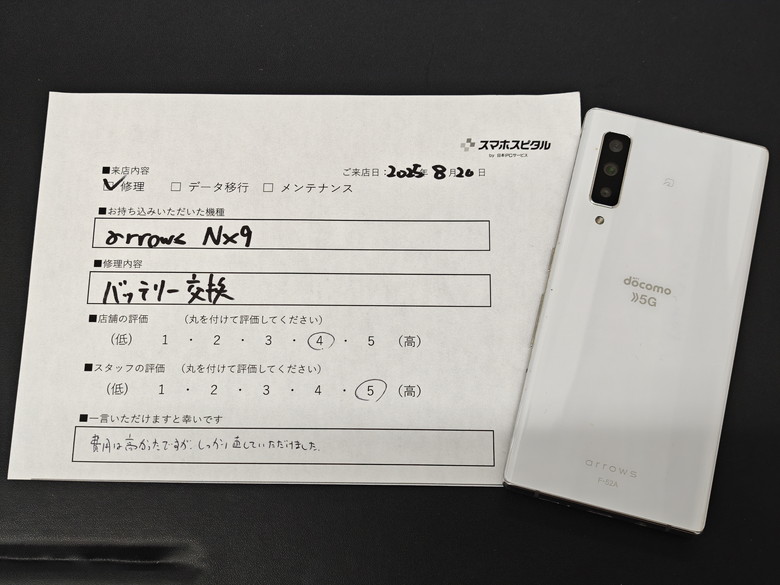 スマホスピタル
by 日本PCサービス
■来店内容
ご来店日：2025年 8月20日
☑修理 □ データ移行 □ メンテナンス
■お持ち込みいただいた機種
arrows NX9
■修理内容
バッテリー交換
■店舗の評価 （丸を付けて評価してください）
（低） 1 ・ 2 ・ 3 ・ 4 ・ 5 （高）
■スタッフの評価 （丸を付けて評価してください）
（低） 1 ・ 2 ・ 3 ・ 4 ・ 5 （高）
■一言いただけますと幸いです
費用は高かったですが、しっかり直していただけました。
döcomo
5G
arrows
F-52A